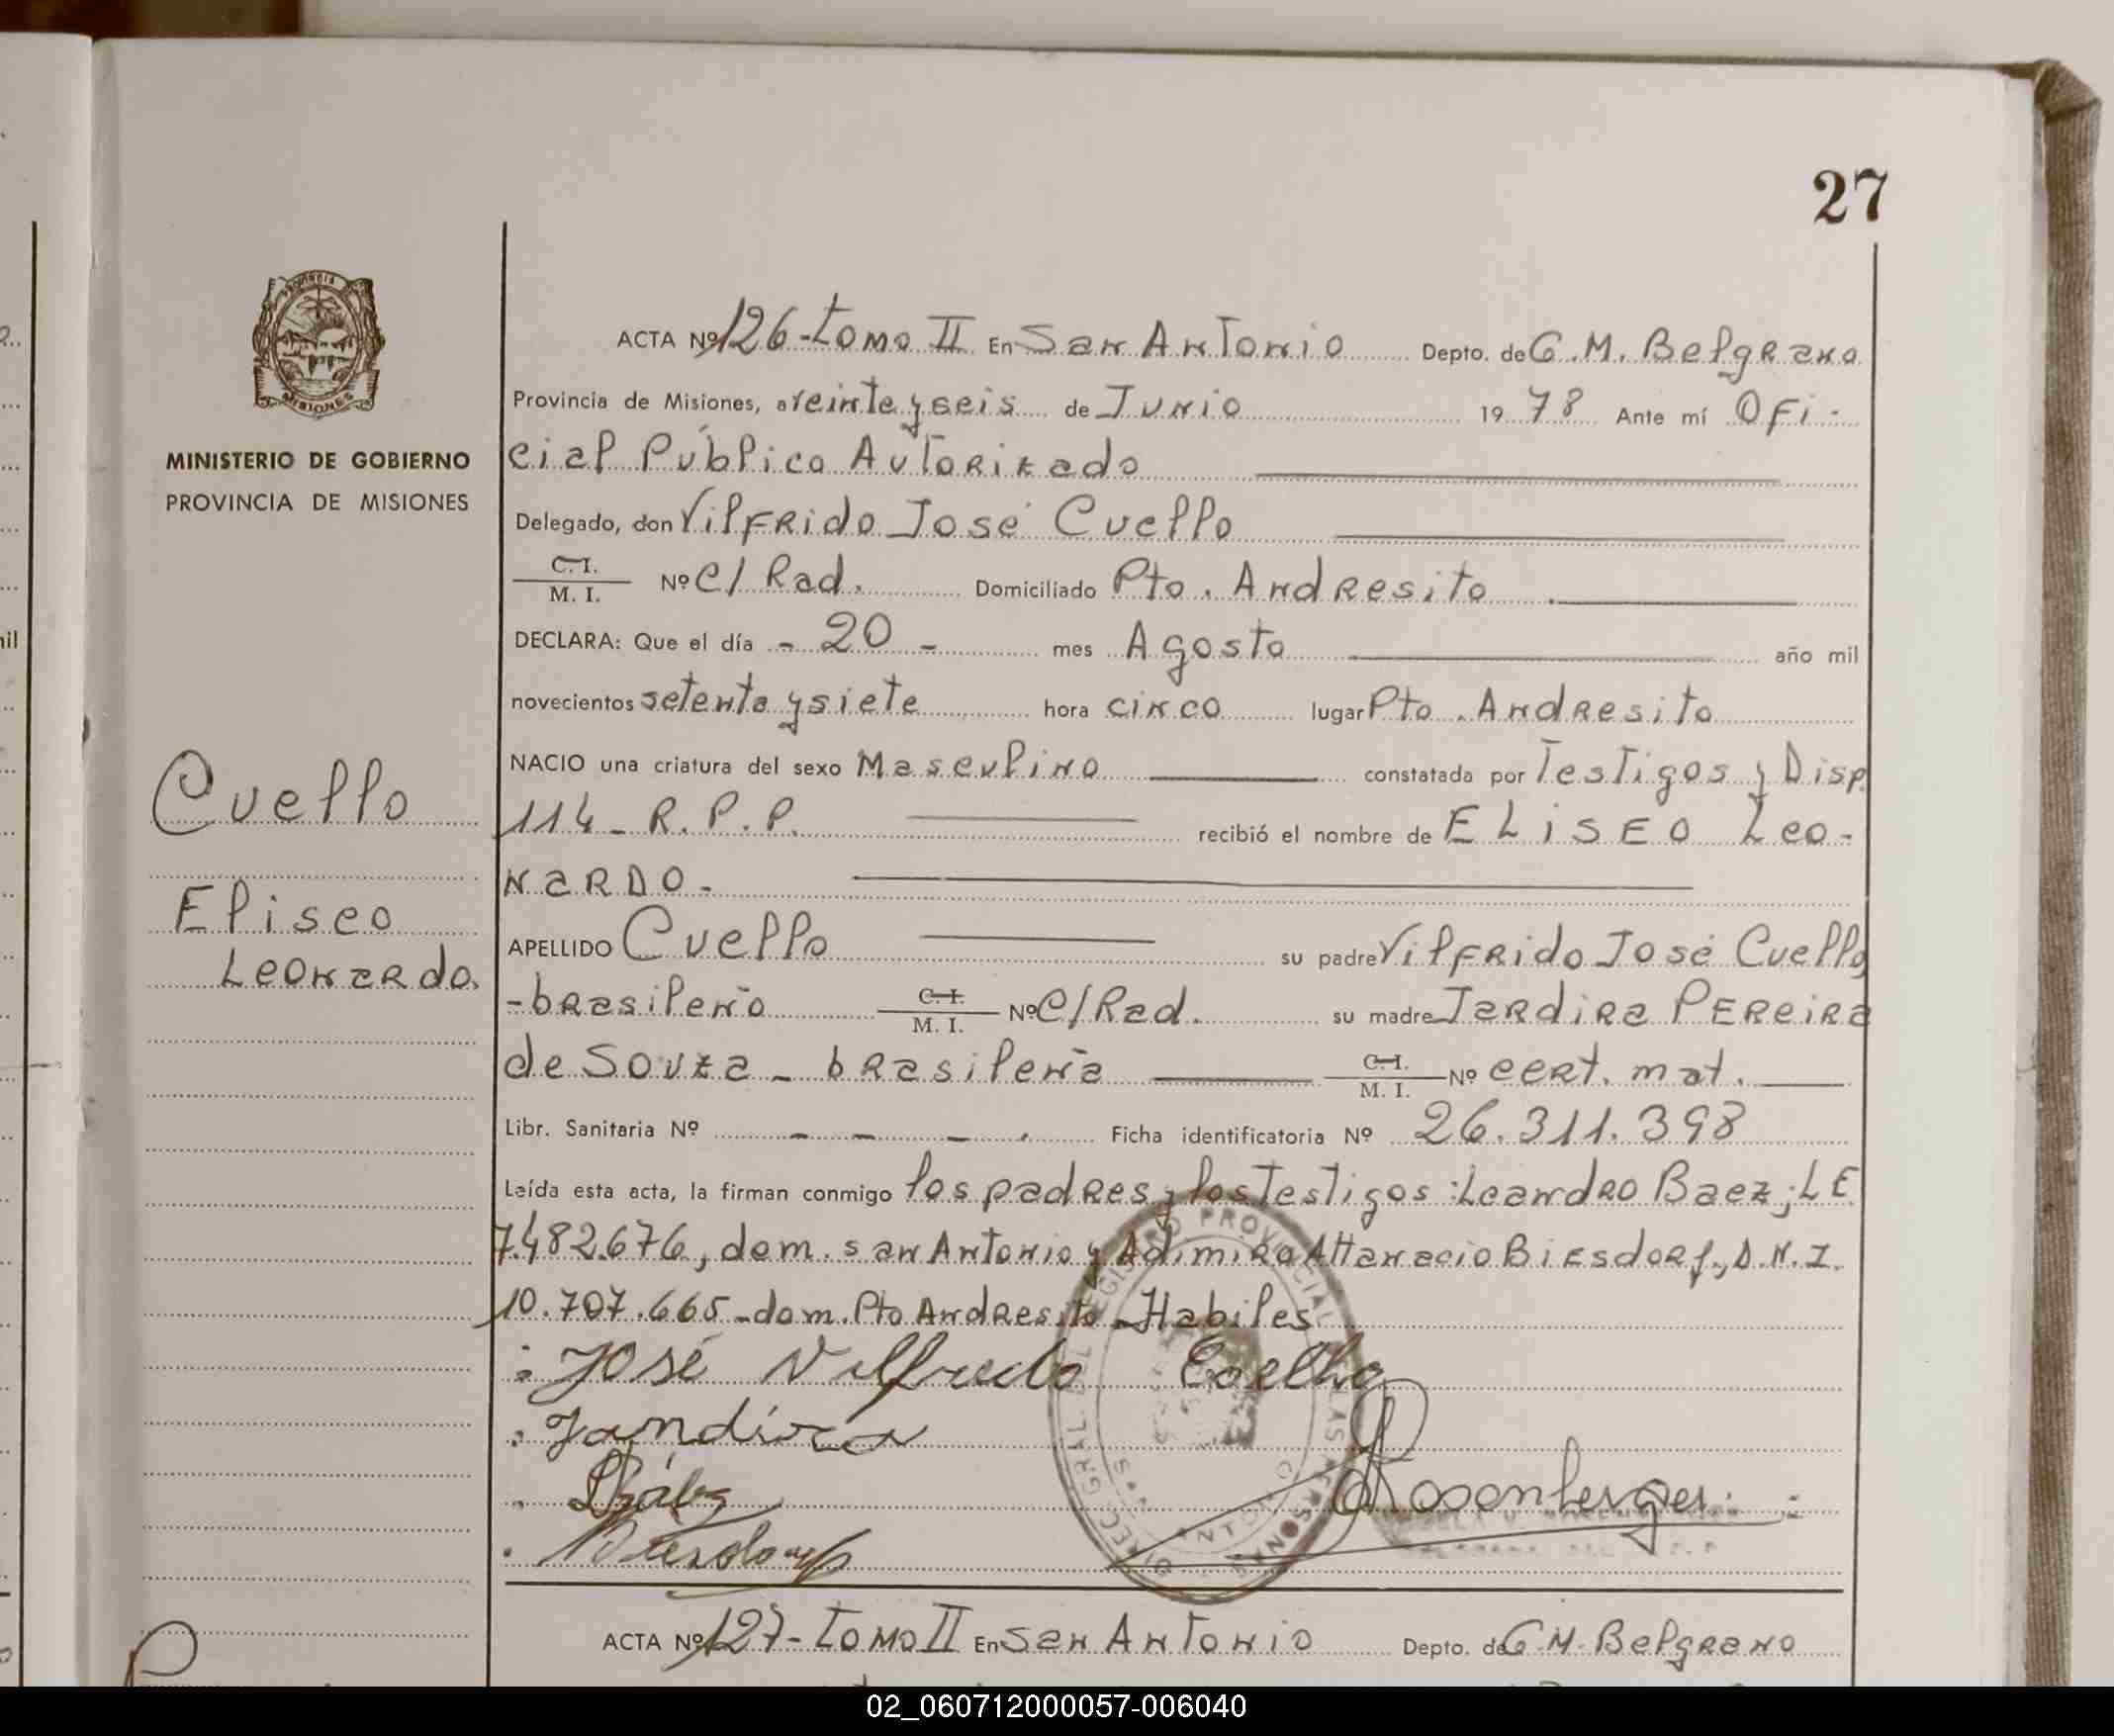 27
ACTA Nº 126-Tomo II En San Antonio Depto. de G.M. Belgrano
Provincia de Misiones, a veinte y seis de Junio 1978 Ante mí Ofi-
cial Público Autorizado
MINISTERIO DE GOBIERNO
PROVINCIA DE MISIONES
Delegado, don Vilfrido José Cuello
C.I. M.I. Nº C/Rad. Domiciliado Pto. Andresito
DECLARA: Que el día - 20 - mes Agosto año mil
novecientos setenta y siete hora cinco lugar Pto. Andresito
NACIO una criatura del sexo Masculino constatada por Testigos y Disp.
114- R.P.P. recibió el nombre de ELISEO Leo-
NARDO.
Cuello
Eliseo
Leonardo.
APELLIDO Cuello su padre Vilfrido José Cuello
-brasileño C.I. M.I. Nº C/Rad. su madre Jardira PEReira
de Souza - brasileña C.I. M.I. Nº cert. mat.
Libr. Sanitaria Nº - - - . Ficha identificatoria Nº 26.311.398
Leída esta acta, la firman conmigo los padres y los Testigos: Leandro Baez; LE
7.482.676, dom. san Antonio y Adimiro Attanacio Biesdorf., D.N.I.
10.707.665-dom. Pto Andresito-Habiles
: José Vilfredo Coelho
: Jandira
Rosenberger
DIRECC. GRAL. DEL REGISTRO PROVINCIAL DE LAS PERSONAS
ACTA Nº 127-Tomo II En San Antonio Depto. de G.M. Belgrano
02_060712000057-006040